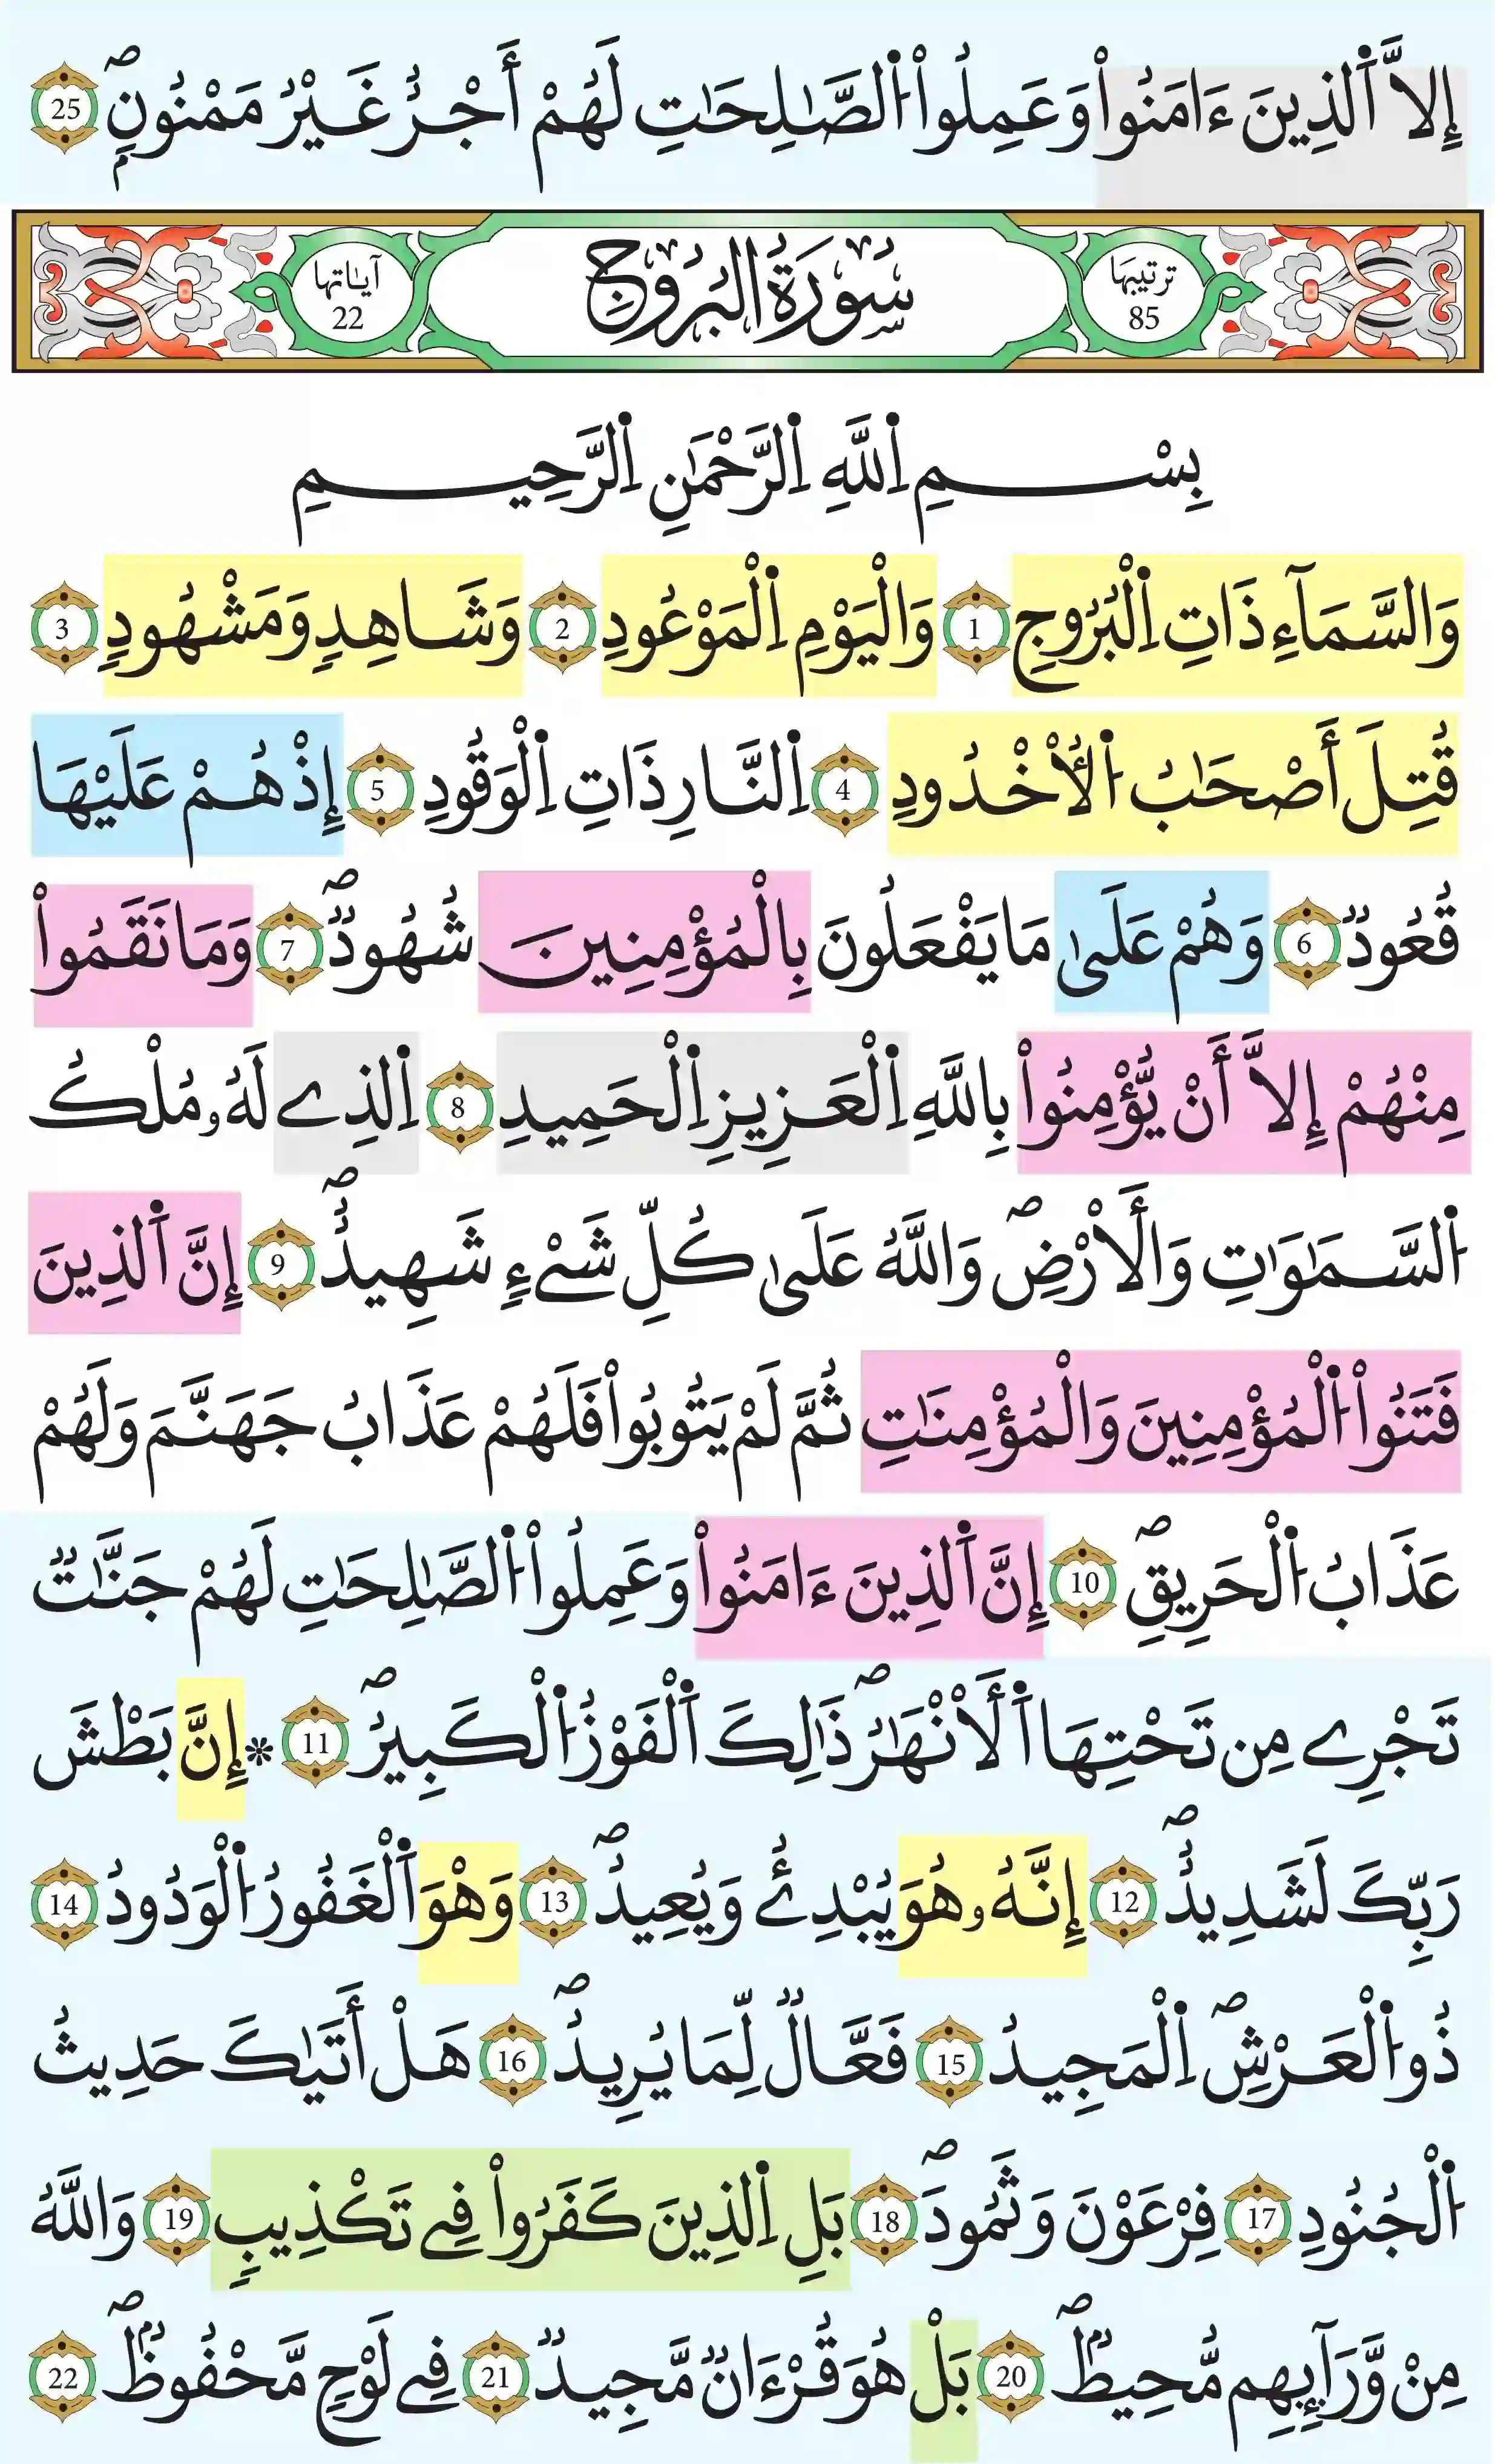 إِلَّا اَ۬لذِينَ ءَامَنُواْ وَعَمِلُواْ اُ۬لصَّٰلِحَٰتِ لَهُمْ أَجْرٌ غَيْرُ مَمْنُونٍۖ 25
ترتيبها 85 سُورَةُ البُرُوجِ آياتها 22
بِسْمِ اِ۬للَّهِ اِ۬لرَّحْمَٰنِ اِ۬لرَّحِيمِ
وَالسَّمَآءِ ذَاتِ اِ۬لْبُرُوجِ 1 وَالْيَوْمِ اِ۬لْمَوْعُودِ 2 وَشَاهِدٍ وَمَشْهُودٍ 3
قُتِلَ أَصْحَٰبُ اُ۬لْأُخْدُودِ 4 اِ۬لنَّارِ ذَاتِ اِ۬لْوَقُودِ 5 إِذْ هُمْ عَلَيْهَا
قُعُودٌ 6 وَهُمْ عَلَىٰ مَا يَفْعَلُونَ بِالْمُؤْمِنِينَ شُهُودٌۖ 7 وَمَا نَقَمُواْ
مِنْهُمْ إِلَّا أَنْ يُّؤْمِنُواْ بِاللَّهِ اِ۬لْعَزِيزِ اِ۬لْحَمِيدِ 8 اِ۬لذِے لَهُۥ مُلْكُ
اُ۬لسَّمَٰوَٰتِ وَالْأَرْضِۖ وَاللَّهُ عَلَىٰ كُلِّ شَےْءٍ شَهِيدٌۖ 9 إِنَّ اَ۬لذِينَ
فَتَنُواْ اُ۬لْمُؤْمِنِينَ وَالْمُؤْمِنَٰتِ ثُمَّ لَمْ يَتُوبُواْ فَلَهُمْ عَذَابُ جَهَنَّمَ وَلَهُمْ
عَذَابُ اُ۬لْحَرِيقِۖ 10 إِنَّ اَ۬لذِينَ ءَامَنُواْ وَعَمِلُواْ اُ۬لصَّٰلِحَٰتِ لَهُمْ جَنَّٰتٌ
تَجْرِے مِن تَحْتِهَا اَ۬لْأَنْهَٰرُۖ ذَٰلِكَ اَ۬لْفَوْزُ اُ۬لْكَبِيرُۖ 11 * إِنَّ بَطْشَ
رَبِّكَ لَشَدِيدٌۖ 12 إِنَّهُۥ هُوَ يُبْدِئُ وَيُعِيدُۖ 13 وَهْوَ اَ۬لْغَفُورُ اُ۬لْوَدُودُ 14
ذُو اُ۬لْعَرْشِۖ اِ۬لْمَجِيدُ 15 فَعَّالٌ لِّمَا يُرِيدُۖ 16 هَلْ أَتَيٰكَ حَدِيثُ
اُ۬لْجُنُودِ 17 فِرْعَوْنَ وَثَمُودَۖ 18 بَلِ اِ۬لذِينَ كَفَرُواْ فِے تَكْذِيبٍ 19 وَاللَّهُ
مِنْ وَّرَآئِهِم مُّحِيطٌۖ 20 بَلْ هُوَ قُرْءَانٌ مَّجِيدٌ 21 فِے لَوْحٍ مَّحْفُوظٌۖ 22